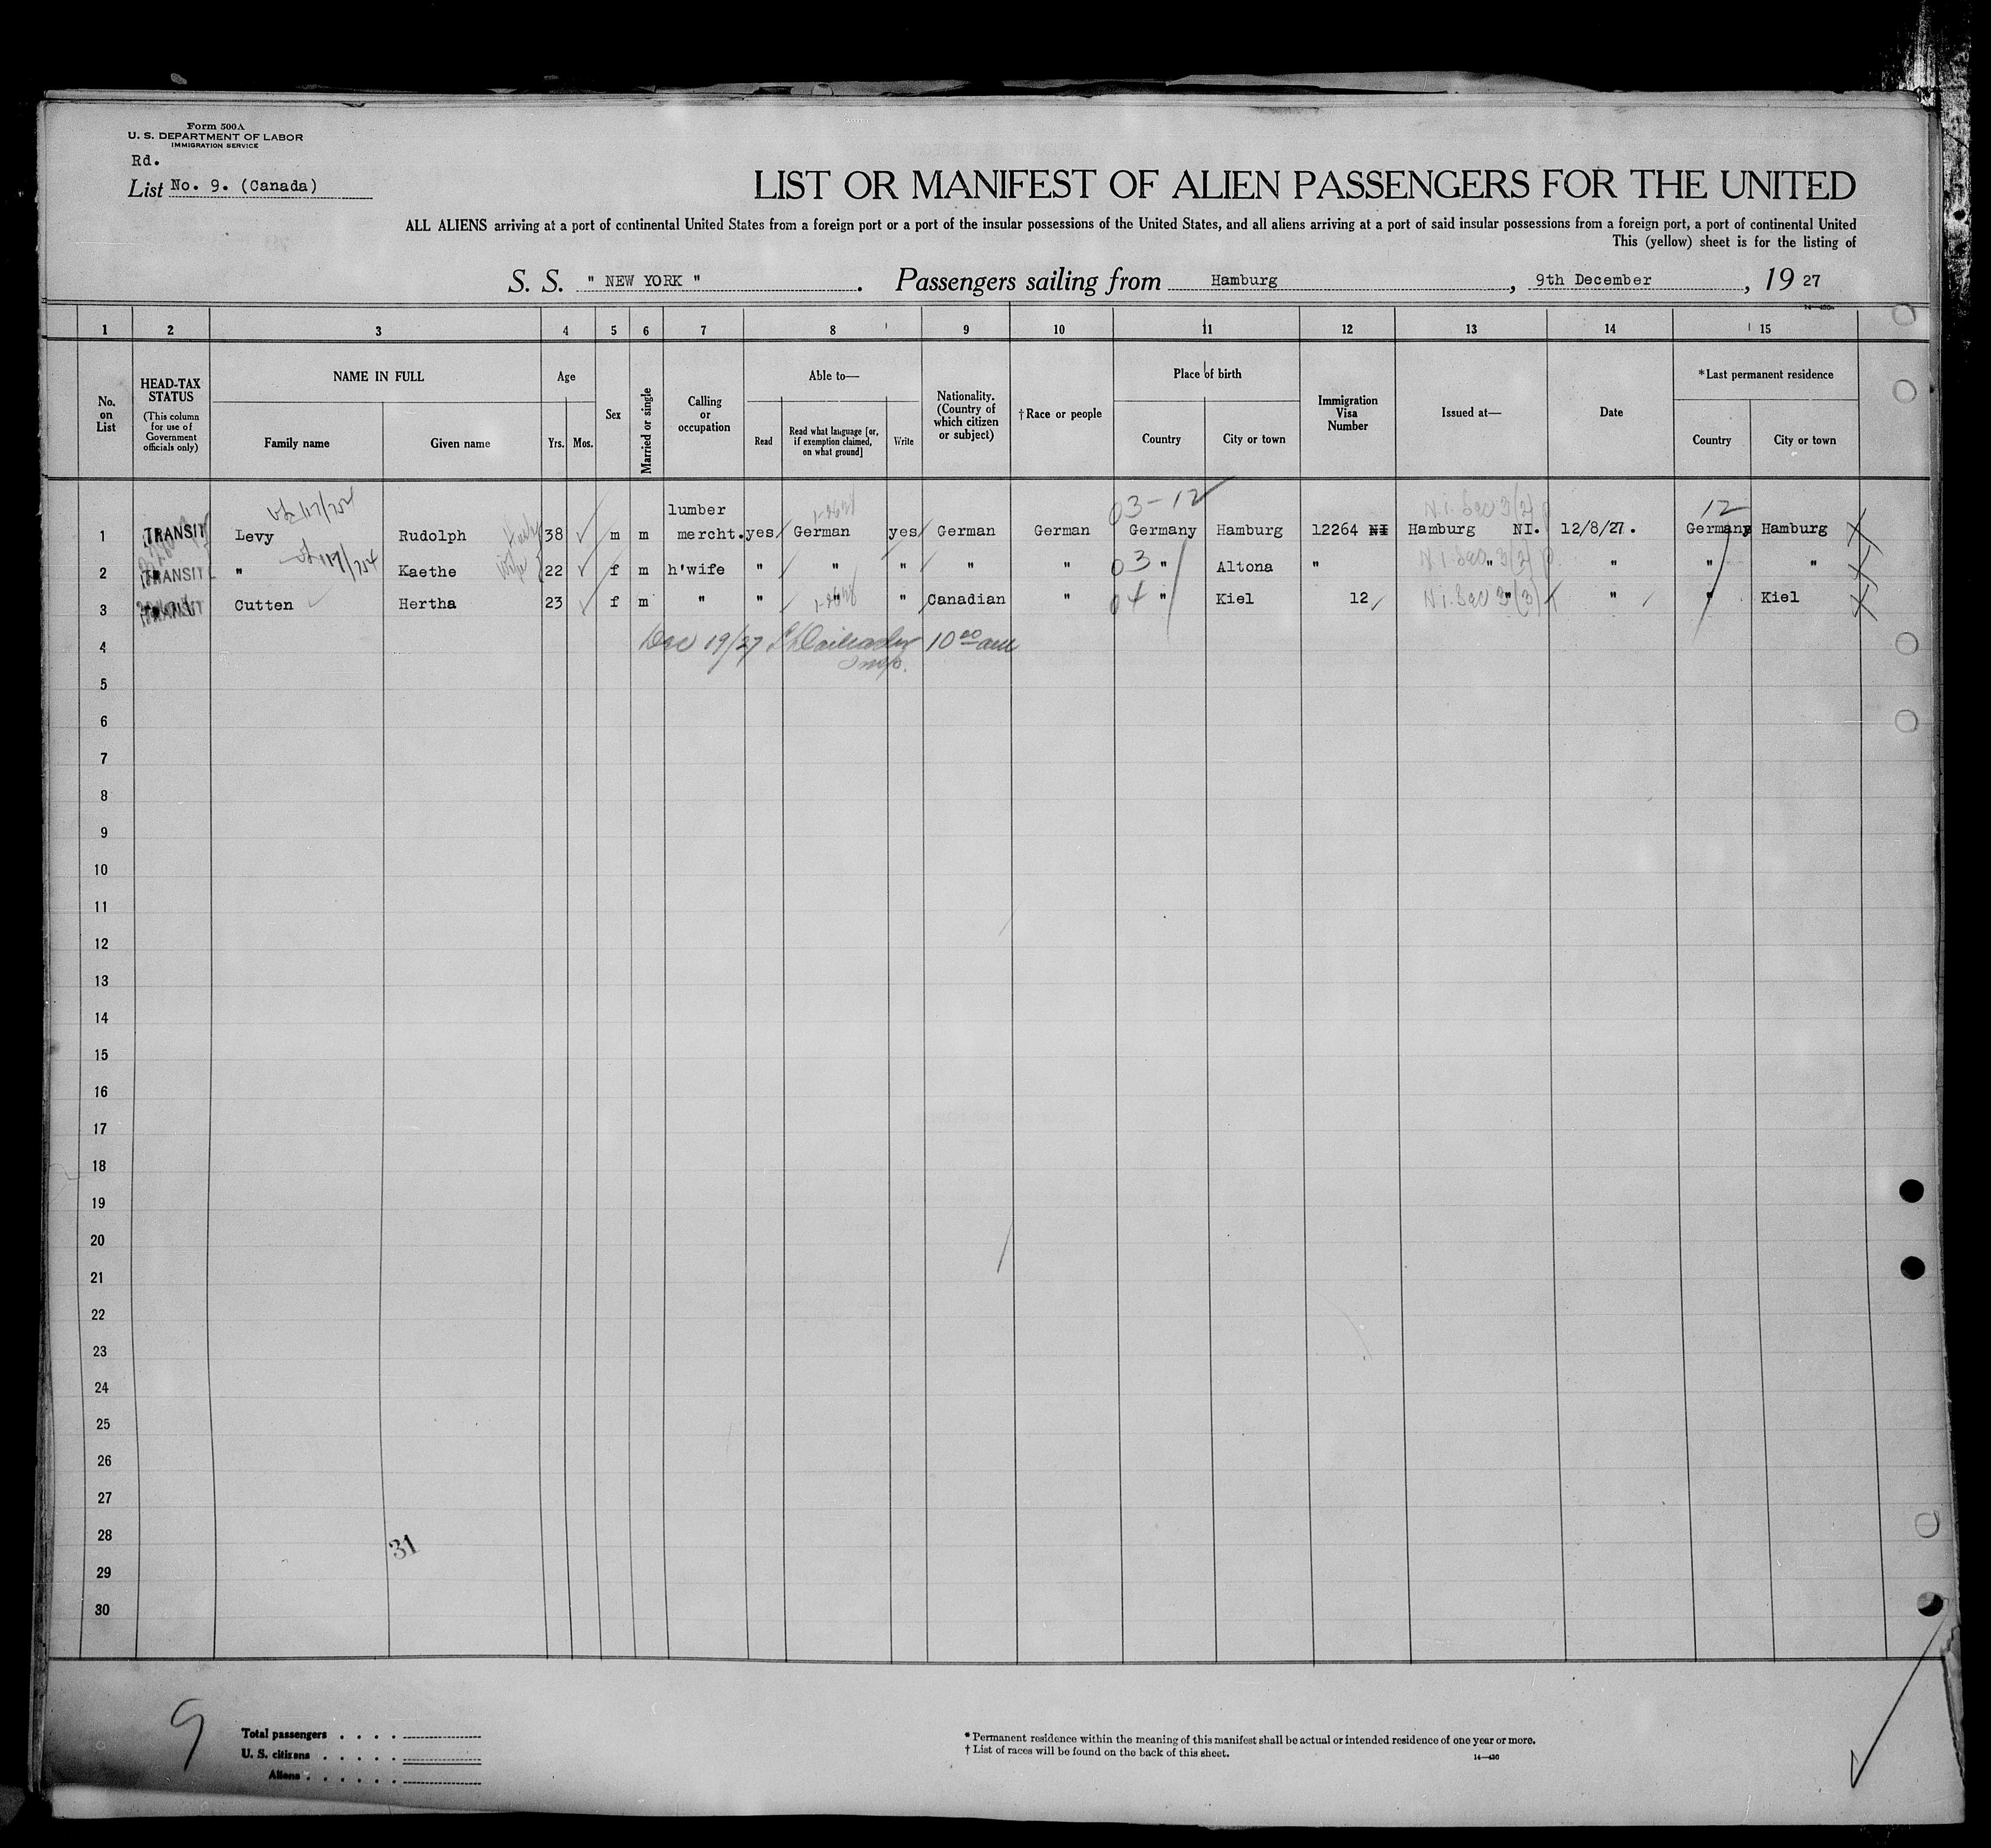 Form 500A
U. S. DEPARTMENT OF LABOR
IMMIGRATION SERVICE
Rd.
List No. 9. (Canada)
LIST OR MANIFEST OF ALIEN PASSENGERS FOR THE UNITED
ALL ALIENS arriving at a port of continental United States from a foreign port or a port of the insular possessions of the United States, and all aliens arriving at a port of said insular possessions from a foreign port, a port of continental United
This (yellow) sheet is for the listing of
S. S. " NEW YORK " . Passengers sailing from Hamburg , 9th December , 19 27
14—430a
1 2 3 4 5 6 7 8 9 10 11 12 13 14 15
No. on List
HEAD-TAX STATUS
(This column for use of Government officials only)
NAME IN FULL
Family name
Given name
Age
Yrs. Mos.
Sex
Married or single
Calling or occupation
Able to—
Read
Read what language [or, if exemption claimed, on what ground]
Write
Nationality. (Country of which citizen or subject)
†Race or people
Place of birth
Country
City or town
Immigration Visa Number
Issued at—
Date
*Last permanent residence
Country
City or town
03-12 12
N.I. Sec 3(2)
1 TRANSIT Levy Rudolph 38 m m lumber mercht. yes German yes German German Germany Hamburg 12264 NI Hamburg NI. 12/8/27. Germany Hamburg
N.I. Sec 3(2)
2 TRANSIT " Kaethe 22 f m h'wife " " " " " 03 " Altona " " " " "
3 TRANSIT Cutten Hertha 23 f m " " " " Canadian " 04 " Kiel 12 N.I. Sec 3(3) " " " Kiel
4 Dec 19/27 10 00 am
Insp.
5
6
7
8
9
10
11
12
13
14
15
16
17
18
19
20
21
22
23
24
25
26
27
28 31
29
30
9
Total passengers . . . .
U. S. citizens . . . . .
Aliens . . . . . .
* Permanent residence within the meaning of this manifest shall be actual or intended residence of one year or more.
† List of races will be found on the back of this sheet.
14—430